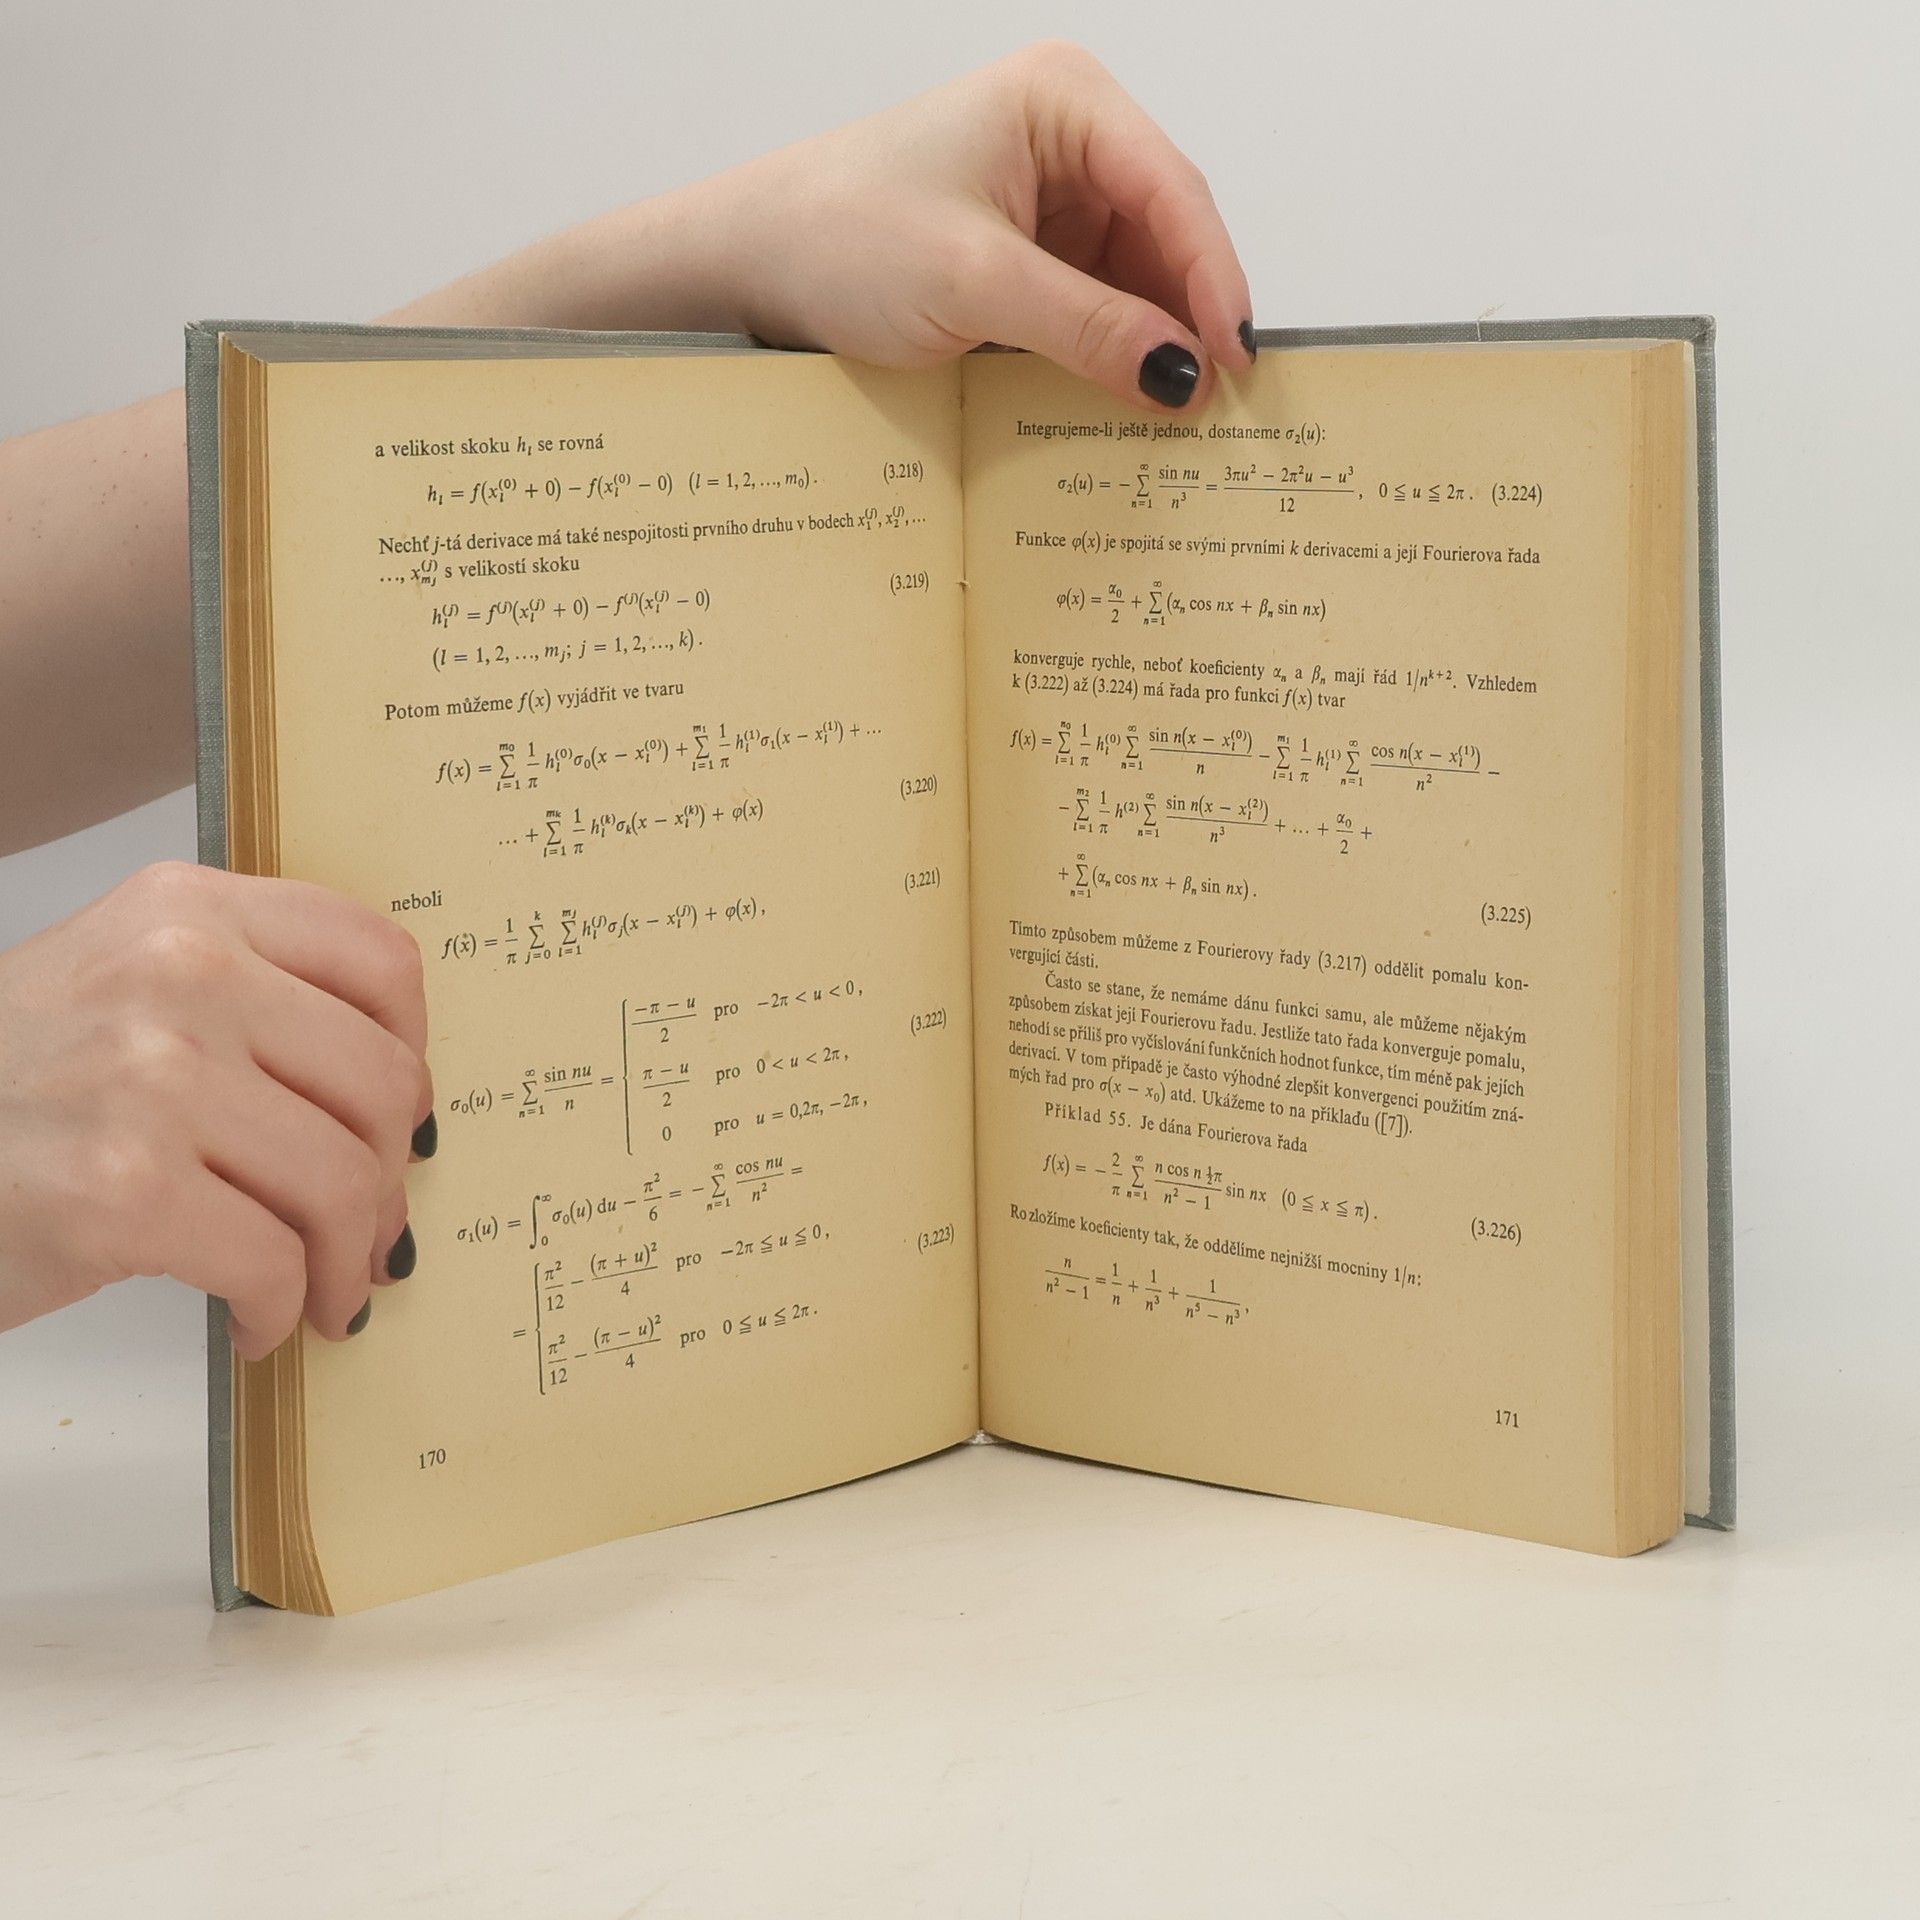 a velikost skoku hₗ se rovná
hₗ = f(xₗ⁽⁰⁾ + 0) − f(xₗ⁽⁰⁾ − 0) (l = 1, 2, …, m₀). (3.218)
Nechť j-tá derivace má také nespojitosti prvního druhu v bodech x₁⁽ʲ⁾, x₂⁽ʲ⁾, …
…, x_{mⱼ}⁽ʲ⁾ s velikostí skoku
hₗ⁽ʲ⁾ = f⁽ʲ⁾(xₗ⁽ʲ⁾ + 0) − f⁽ʲ⁾(xₗ⁽ʲ⁾ − 0) (3.219)
(l = 1, 2, …, mⱼ; j = 1, 2, …, k).
Potom můžeme f(x) vyjádřit ve tvaru
f(x) = ∑_{l=1}^{m₀} 1/π hₗ⁽⁰⁾σ₀(x − xₗ⁽⁰⁾) + ∑_{l=1}^{m₁} 1/π hₗ⁽¹⁾σ₁(x − xₗ⁽¹⁾) + …
… + ∑_{l=1}^{mₖ} 1/π hₗ⁽ᵏ⁾σₖ(x − xₗ⁽ᵏ⁾) + φ(x) (3.220)
neboli
f(x) = 1/π ∑_{j=0}^{k} ∑_{l=1}^{mⱼ} hₗ⁽ʲ⁾σⱼ(x − xₗ⁽ʲ⁾) + φ(x), (3.221)
(−π − u)/2 pro −2π < u < 0,
σ₀(u) = ∑_{n=1}^{∞} sin nu/n = { (π − u)/2 pro 0 < u < 2π, (3.222)
0 pro u = 0,2π, −2π,
σ₁(u) = ∫₀^∞ σ₀(u) du − π²/6 = −∑_{n=1}^{∞} cos nu/n² =
= { π²/12 − (π + u)²/4 pro −2π ≦ u ≦ 0, (3.223)
π²/12 − (π − u)²/4 pro 0 ≦ u ≦ 2π.
170
Integrujeme-li ještě jednou, dostaneme σ₂(u):
σ₂(u) = −∑_{n=1}^{∞} sin nu/n³ = (3πu² − 2π²u − u³)/12, 0 ≦ u ≦ 2π. (3.224)
Funkce φ(x) je spojitá se svými prvními k derivacemi a její Fourierova řada
φ(x) = α₀/2 + ∑_{n=1}^{∞}(αₙ cos nx + βₙ sin nx)
konverguje rychle, neboť koeficienty αₙ a βₙ mají řád 1/nᵏ⁺². Vzhledem
k (3.222) až (3.224) má řada pro funkci f(x) tvar
f(x) = ∑_{l=1}^{n₀} 1/π hₗ⁽⁰⁾ ∑_{n=1}^{∞} sin n(x − xₗ⁽⁰⁾)/n − ∑_{l=1}^{m₁} 1/π hₗ⁽¹⁾ ∑_{n=1}^{∞} cos n(x − xₗ⁽¹⁾)/n² −
− ∑_{l=1}^{m₂} 1/π h⁽²⁾ ∑_{n=1}^{∞} sin n(x − xₗ⁽²⁾)/n³ + … + α₀/2 +
+ ∑_{n=1}^{∞}(αₙ cos nx + βₙ sin nx). (3.225)
Tímto způsobem můžeme z Fourierovy řady (3.217) oddělit pomalu kon-
vergující části.
Často se stane, že nemáme dánu funkci samu, ale můžeme nějakým
způsobem získat její Fourierovu řadu. Jestliže tato řada konverguje pomalu,
nehodí se příliš pro vyčíslování funkčních hodnot funkce, tím méně pak jejích
derivací. V tom případě je často výhodné zlepšit konvergenci použitím zná-
mých řad pro σ(x − x₀) atd. Ukážeme to na příkladu ([7]).
Příklad 55. Je dána Fourierova řada
f(x) = −2/π ∑_{n=1}^{∞} (n cos n ½π)/(n² − 1) sin nx (0 ≦ x ≦ π). (3.226)
Rozložíme koeficienty tak, že oddělíme nejnižší mocniny 1/n:
n/(n² − 1) = 1/n + 1/n³ + 1/(n⁵ − n³),
171